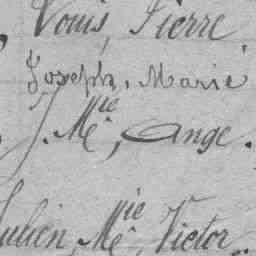 Louis, Pierre
Joseph, Marie
J. Mie, Ange.
Julien, Mie, Victor..